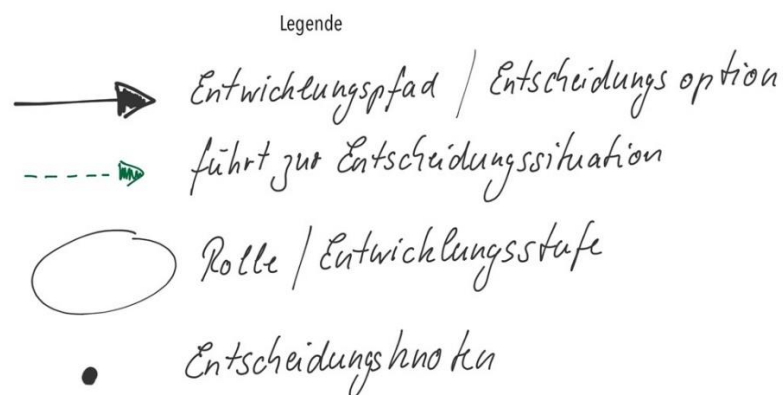 Legende
Entwicklungspfad / Entscheidungsoption
führt zur Entscheidungssituation
Rolle / Entwicklungsstufe
Entscheidungsknoten